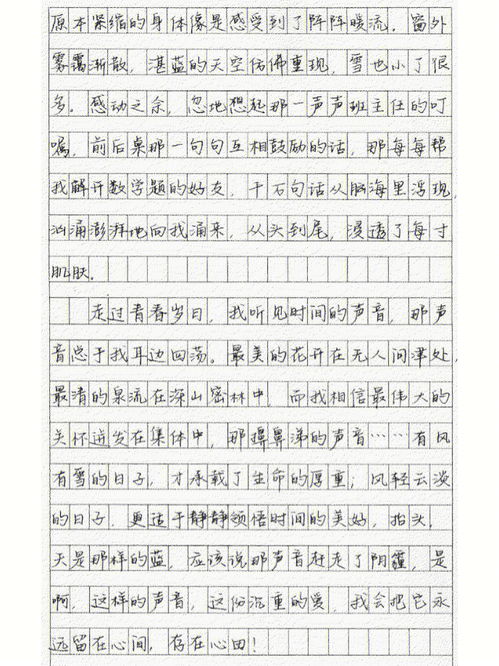 原本紧缩的身体像是感受到了阵阵暖流。窗外
雾霭渐散，湛蓝的天空仿佛重现，雪也小了很
多。感动之余，忽地想起那一声声班主任的叮
嘱，前后桌那一句句互相鼓励的话，那每每帮
我解开数学题的好友，千百句话从脑海里浮现，
汹涌澎湃地向我涌来，从头到尾，浸透了每寸
肌肤。
走过青春岁月，我听见时间的声音，那声
音总于我耳边回荡。最美的花开在无人问津处，
最清的泉流在深山密林中，而我相信最伟大的
关怀迸发在集体中，那擤鼻涕的声音……有风
有雪的日子，才承载了生命的厚重；风轻云淡
的日子，更适于静静领悟时间的美好，抬头，
天是那样的蓝，应该说那声音赶走了阴霾，是
啊，这样的声音，这份沉重的爱，我会把它永
远留在心间，存在心田！